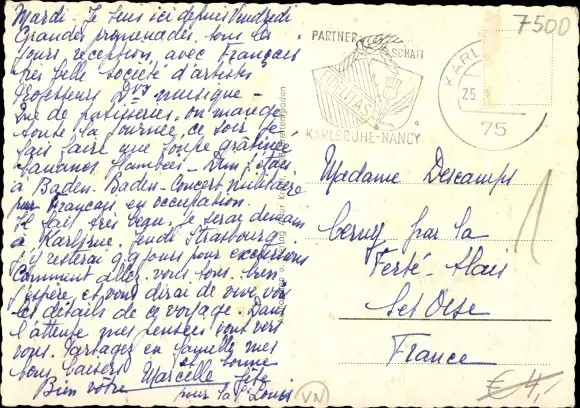 Mardi. Je suis ici depuis Vendredi
Grandes promenades, tous les
jours réception, avec Français
très belle société d'artistes
Professeurs Dr musique –
Que de patisseries, on mange
toute la journée, ce soir je
fais faire une soupe gratinée
bananes flambées –
à Baden-Baden – Concert militaire
par Français en occupation.
Il fait très beau. Je serai demain
à Karlsrue. Jeudi Strasbourg
j'y resterai qq jours pour excursions
Comment allez vous tous. bien
j'espère, et vous dirai de vive voix
les détails de ce voyage. Dans
l'attente mes pensées vont vers
vous. Partagez en famille mes
bons baisers et bonne
Bien vôtre Marcelle fête
pour la St Louis
PARTNER
SCHAFT
FIDELITAS
KARLSRUHE-NANCY
KARL
25.
75
7500
Madame Descamps
Cerny par la
Ferté-Alais
Set Oise
France
1
VN
€ 4,-